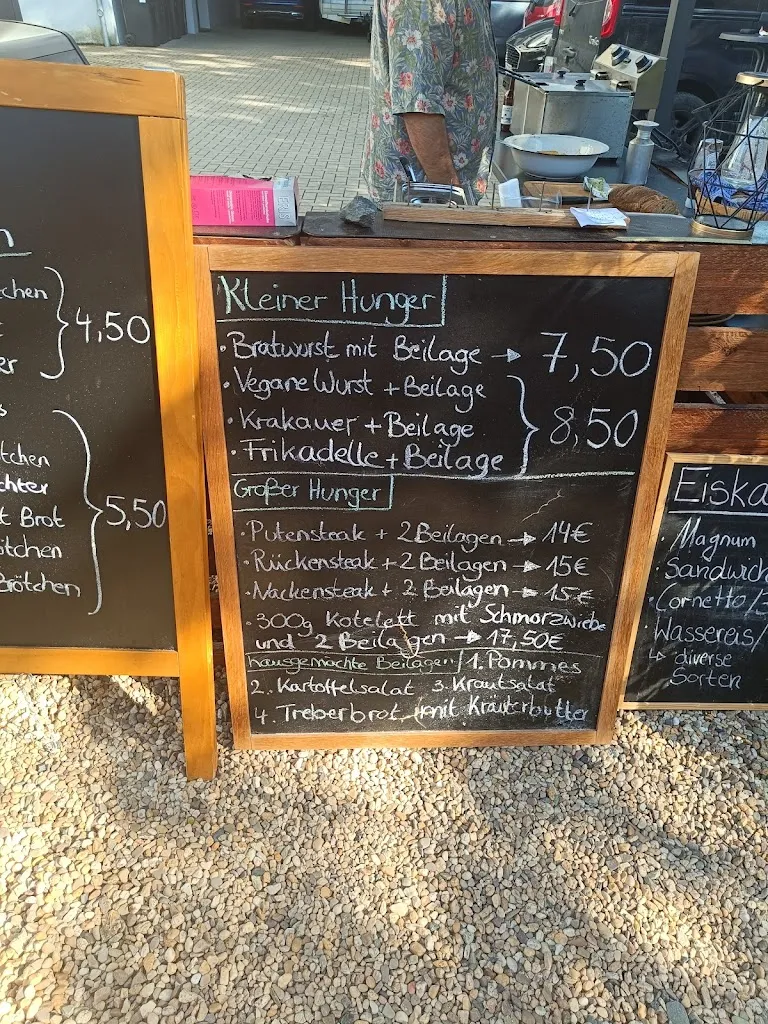 chen
4,50
er
tchen
chter
5,50
t Brot
ötchen
Brötchen
Kleiner Hunger
• Bratwurst mit Beilage → 7,50
• Vegane Wurst + Beilage
• Krakauer + Beilage
8,50
• Frikadelle + Beilage
Großer Hunger
• Putensteak + 2 Beilagen → 14€
• Rückensteak + 2 Beilagen → 15€
• Nackensteak + 2 Beilagen → 15€
• 300g Kotelett mit Schmorzwiebe
und 2 Beilagen → 17,50€
hausgemachte Beilagen / 1. Pommes
2. Kartoffelsalat 3. Krautsalat
4. Treberbrot mit Kräuterbutter
Eiska
• Magnum
• Sandwich
• Cornetto/
Wassereis/
↳ diverse
Sorten